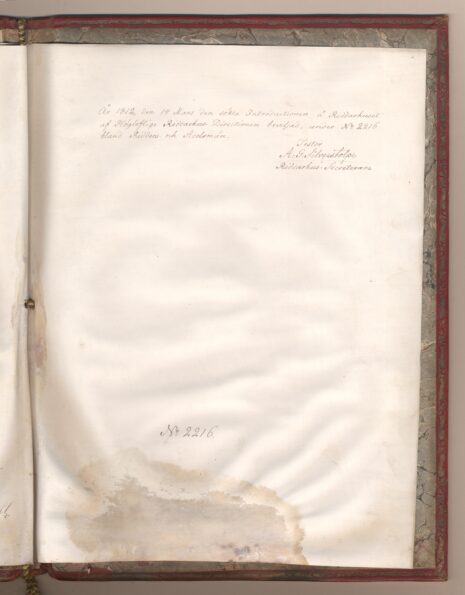 År 1812, den 19 Mars den sökta Introductionen å Riddarhuset
af Högloflige Riddarhus Directionen beviljad, under No 2216
bland Riddare och Adelsmän.
Testor
A. G. Silverstolpe
Riddarhus-Secreterare
No 2216.